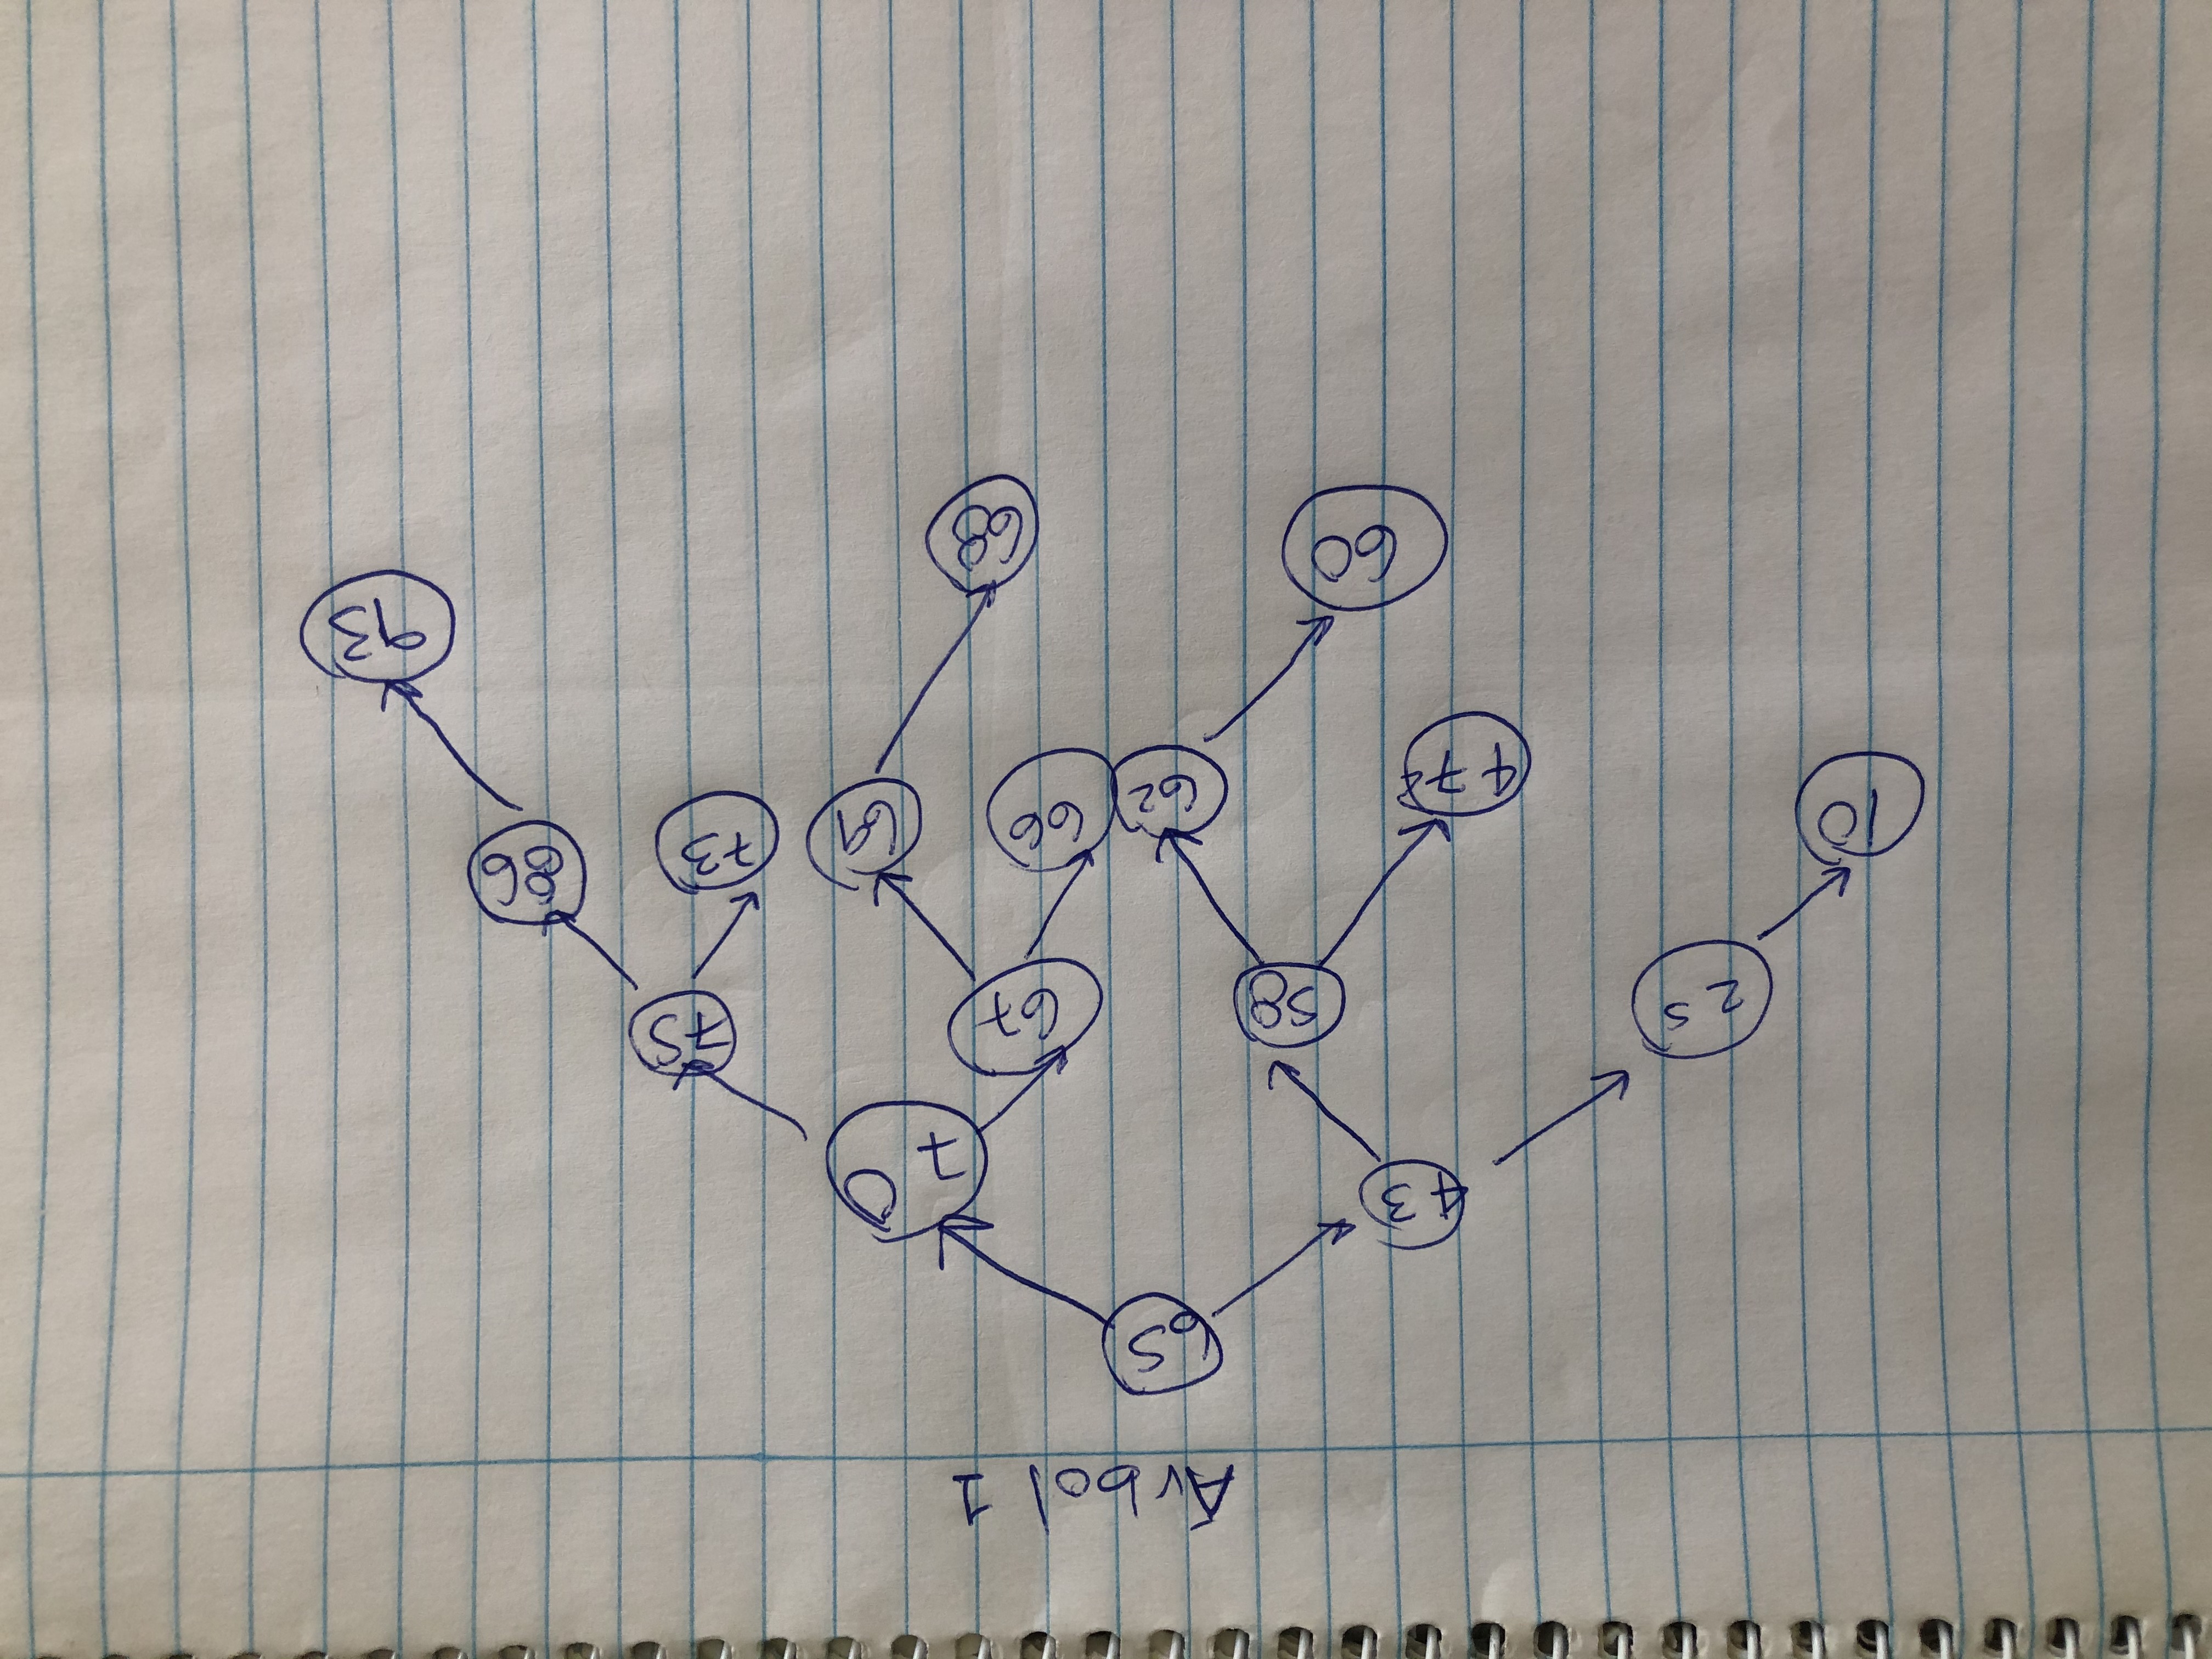 Árbol 1
65
43 70
25 58 67 75
10 47 62 66 69 73 86
60 68 93